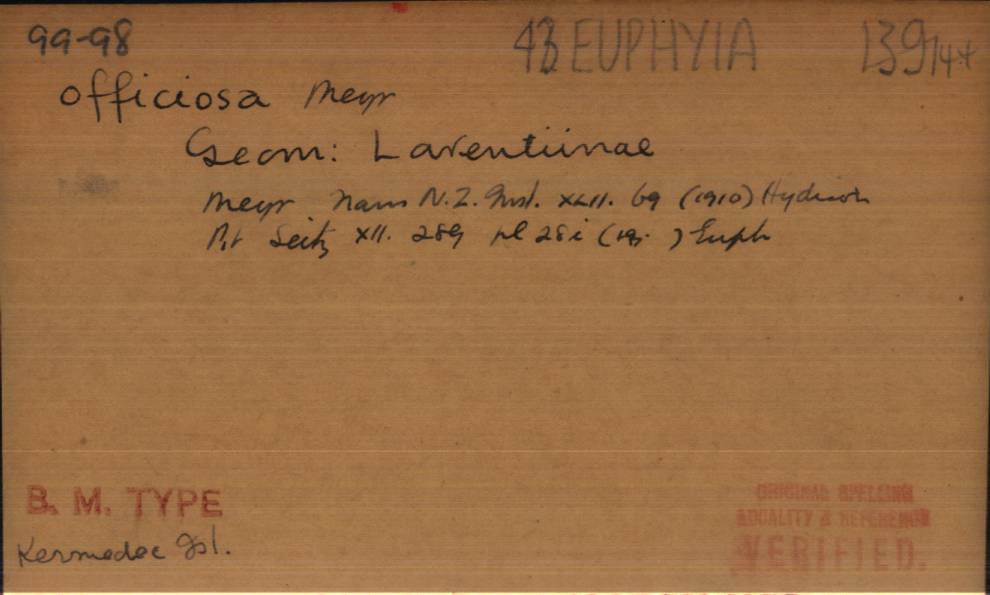 99-98 43 EUPHYIA 139/4+
officiosa Meyr
Geom: Larentiinae
Meyr Trans N.Z. Inst. XLII. 69 (1910) Hydriom
Seitz XII. 289 pl 28i (19 ) Euph
B. M. TYPE
Kermadec Isl.
ORIGINAL SPELLING
LOCALITY & REFERENCE
VERIFIED.